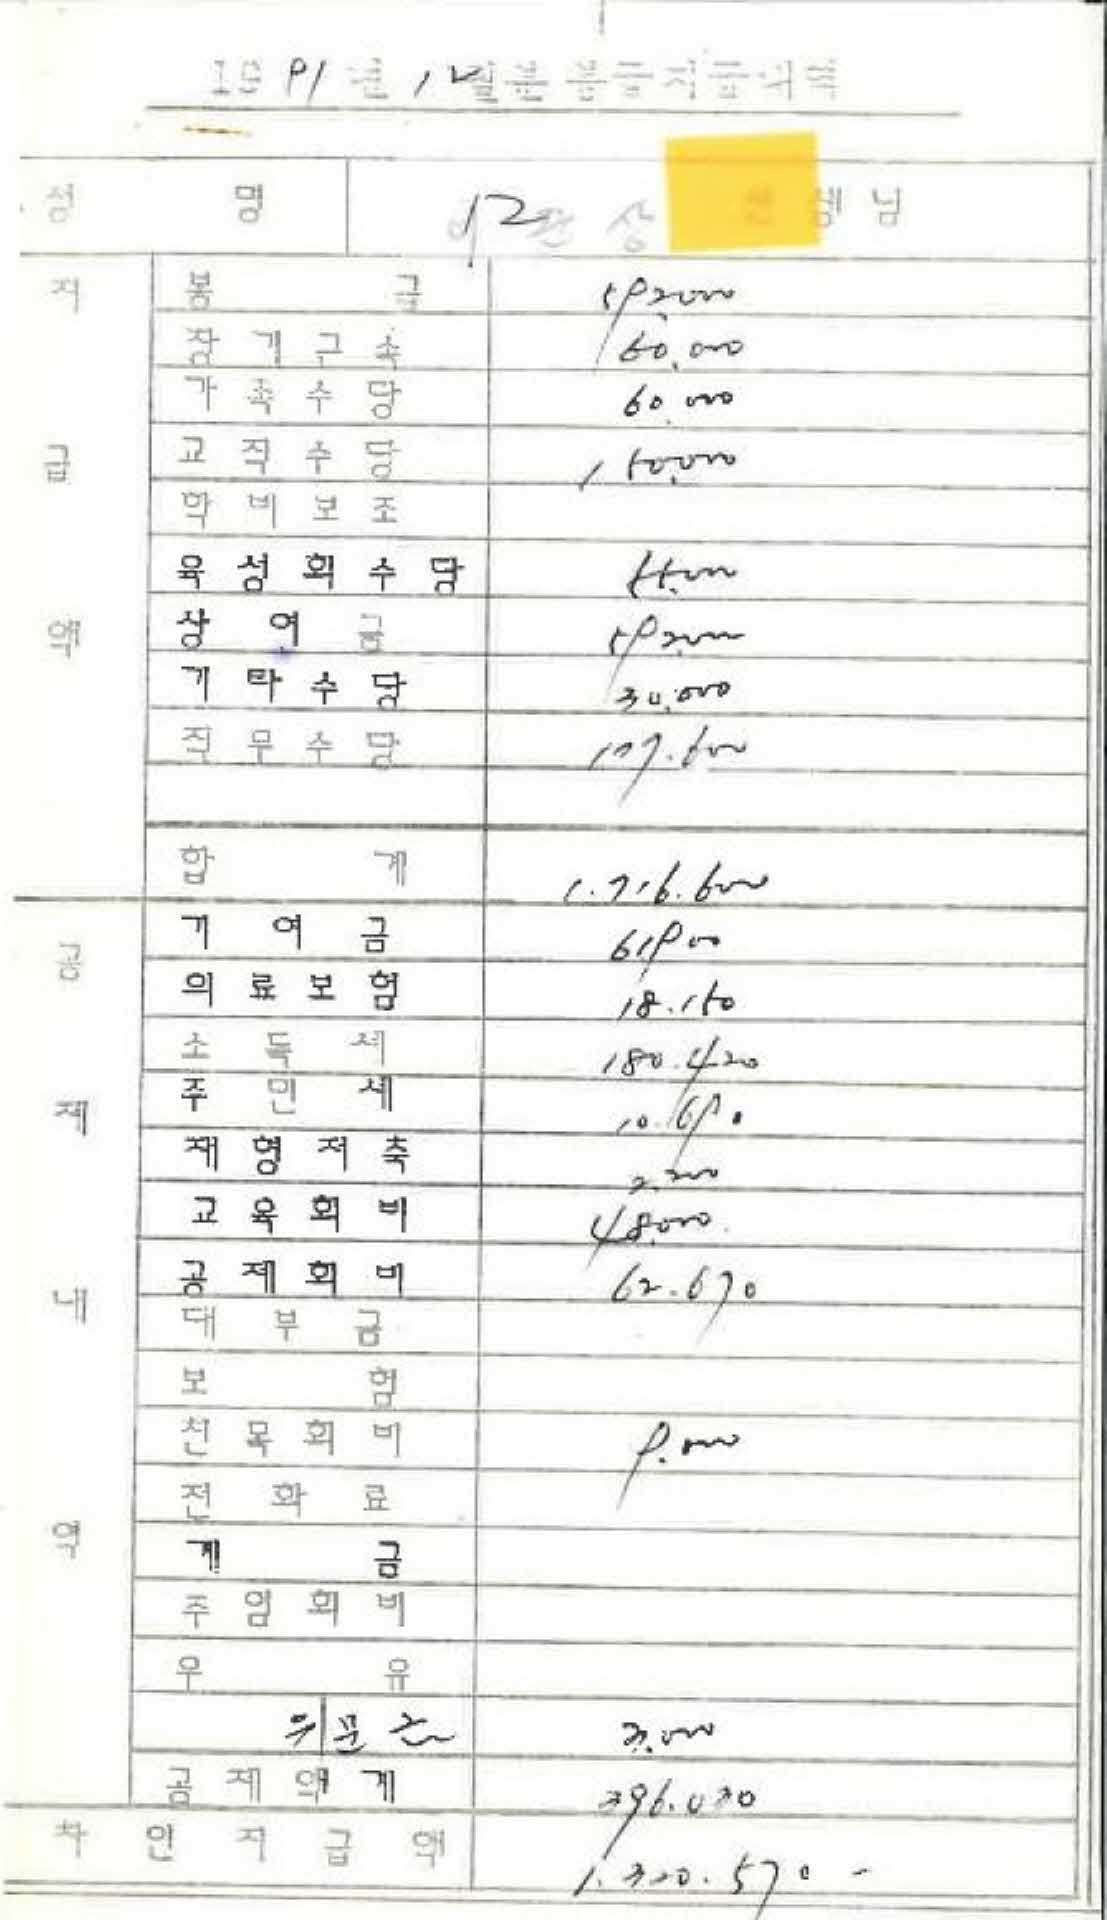 19 91 년 12 월분 봉급지급
성 명
지 급 액
봉 급 592.000
장기근속 60.000
가족수당 60.000
교직수당 150.000
학비보조
육성회수당 55.000
상여금 592.000
기타수당 30.000
직무수당 177.600
합 계 1.716.600
공 제 내 역
기여금 61900
의료보험 18.150
소득세 180.420
주민세 10.690
재형저축 2.200
교육회비 48.000
공제회비 62.670
대부금
보험
친목회비 9.000
전화료
계금
주임회비
우유
위문금 3.000
공제액계 396.030
차인지급액 1.320.570 -